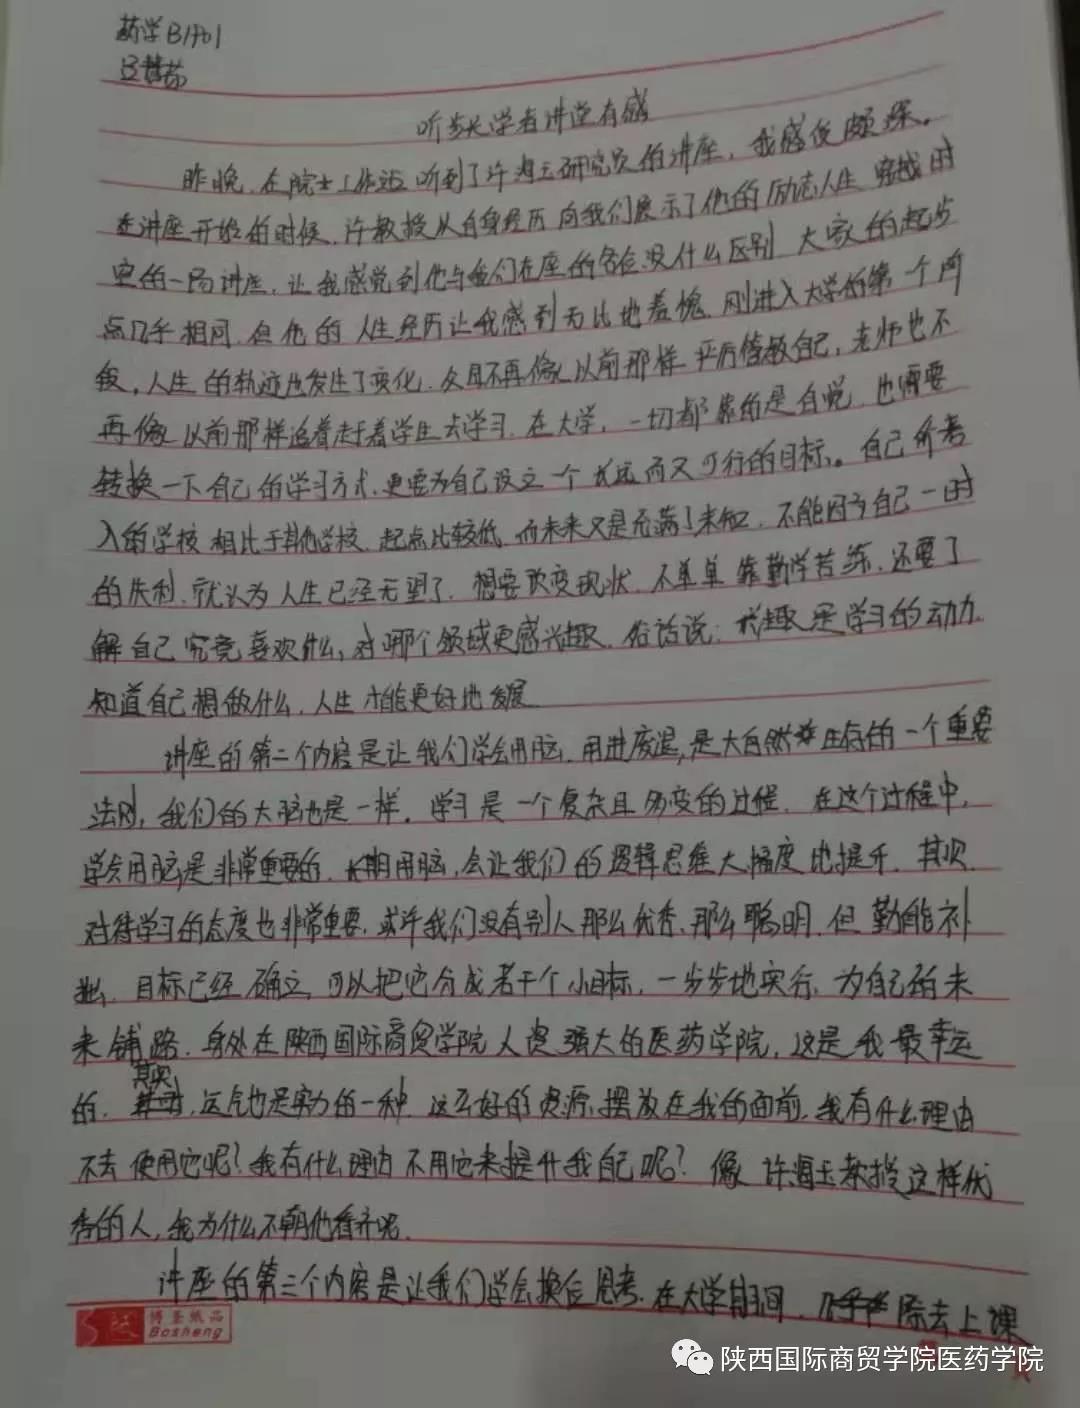 药学B1901
听步长学者讲堂有感
昨晚,在院士工作站听到了许海玉研究员的讲座,我感受颇深。
在讲座开始的时候,许教授从自身经历向我们展示了他的励志人生,穿越时
空的一场讲座,让我感觉到他与我们在座的各位没什么区别,大家的起步
点几乎相同,但他的人生经历让我感到无比地羞愧,刚进入大学的第一个阶
段,人生的轨迹也发生了变化,父母不再像以前那样严厉管教自己,老师也不
再像以前那样追着赶着学生去学习,在大学,一切都靠的是自觉,也需要
转换一下自己的学习方式,更要为自己设立一个长远而又可行的目标。自己所考
入的学校相比于其他学校,起点比较低,而未来又是充满了未知,不能因为自己一时
的失利,就认为人生已经无望了,想要改变现状,不单单靠勤学苦练,还要了
解自己究竟喜欢什么,对哪个领域更感兴趣,俗话说:兴趣是学习的动力,
知道自己想做什么,人生才能更好地发展
讲座的第二个内容是让我们学会用脑,用进废退,是大自然生存的一个重要
法则,我们的大脑也是一样。学习是一个复杂且多变的过程,在这个过程中,
学会用脑是非常重要的,长期用脑,会让我们的逻辑思维大幅度地提升,其次,
对待学习的态度也非常重要,或许我们没有别人那么优秀,那么聪明,但勤能补
拙,目标已经确立,可以把它分成若干个小目标,一步步地实行,为自己的未
来铺路,身处在陕西国际商贸学院人资强大的医药学院,这是我最幸运
的,其实,运气也是实力的一种,这么好的资源,摆放在我的面前,我有什么理由
不去使用它呢?我有什么理由不用它来提升我自己呢?像许海玉教授这样优
秀的人,我为什么不朝他看齐呢
讲座的第三个内容是让我们学会换位思考,在大学期间,除去上课
博圣纸品
Bosheng
陕西国际商贸学院医药学院